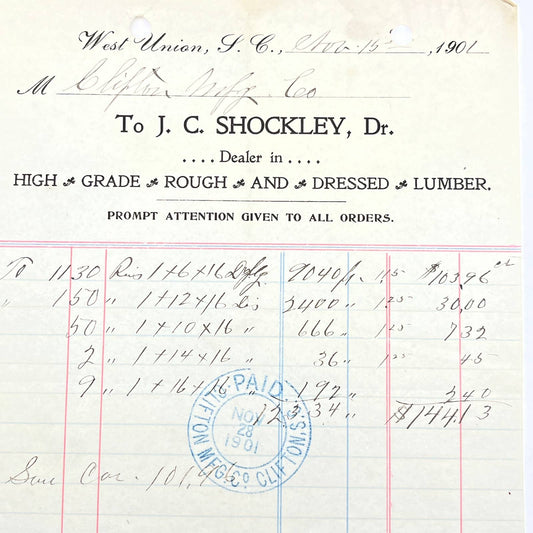 West Union, S. C., Nov. 15th, 1901
M Clifton Mfg. Co
To J. C. SHOCKLEY, Dr.
....Dealer in....
HIGH GRADE ROUGH AND DRESSED LUMBER.
PROMPT ATTENTION GIVEN TO ALL ORDERS.
To 1130 1+6+16 9040 1.15 $103.96
" 150 " 1+12+16 2400 " 1.25 30.00
50 " 1+10+16 " 666 " 1.25 7 32
2 " 1+14+16 " 36 " 1.25 45
9 " 1+16+16 " 192 " 2 40
123.34 " $144.13
PAID
NOV
28
1901
CLIFTON MFG. CO. CLIFTON, S.C.
Car. 101,